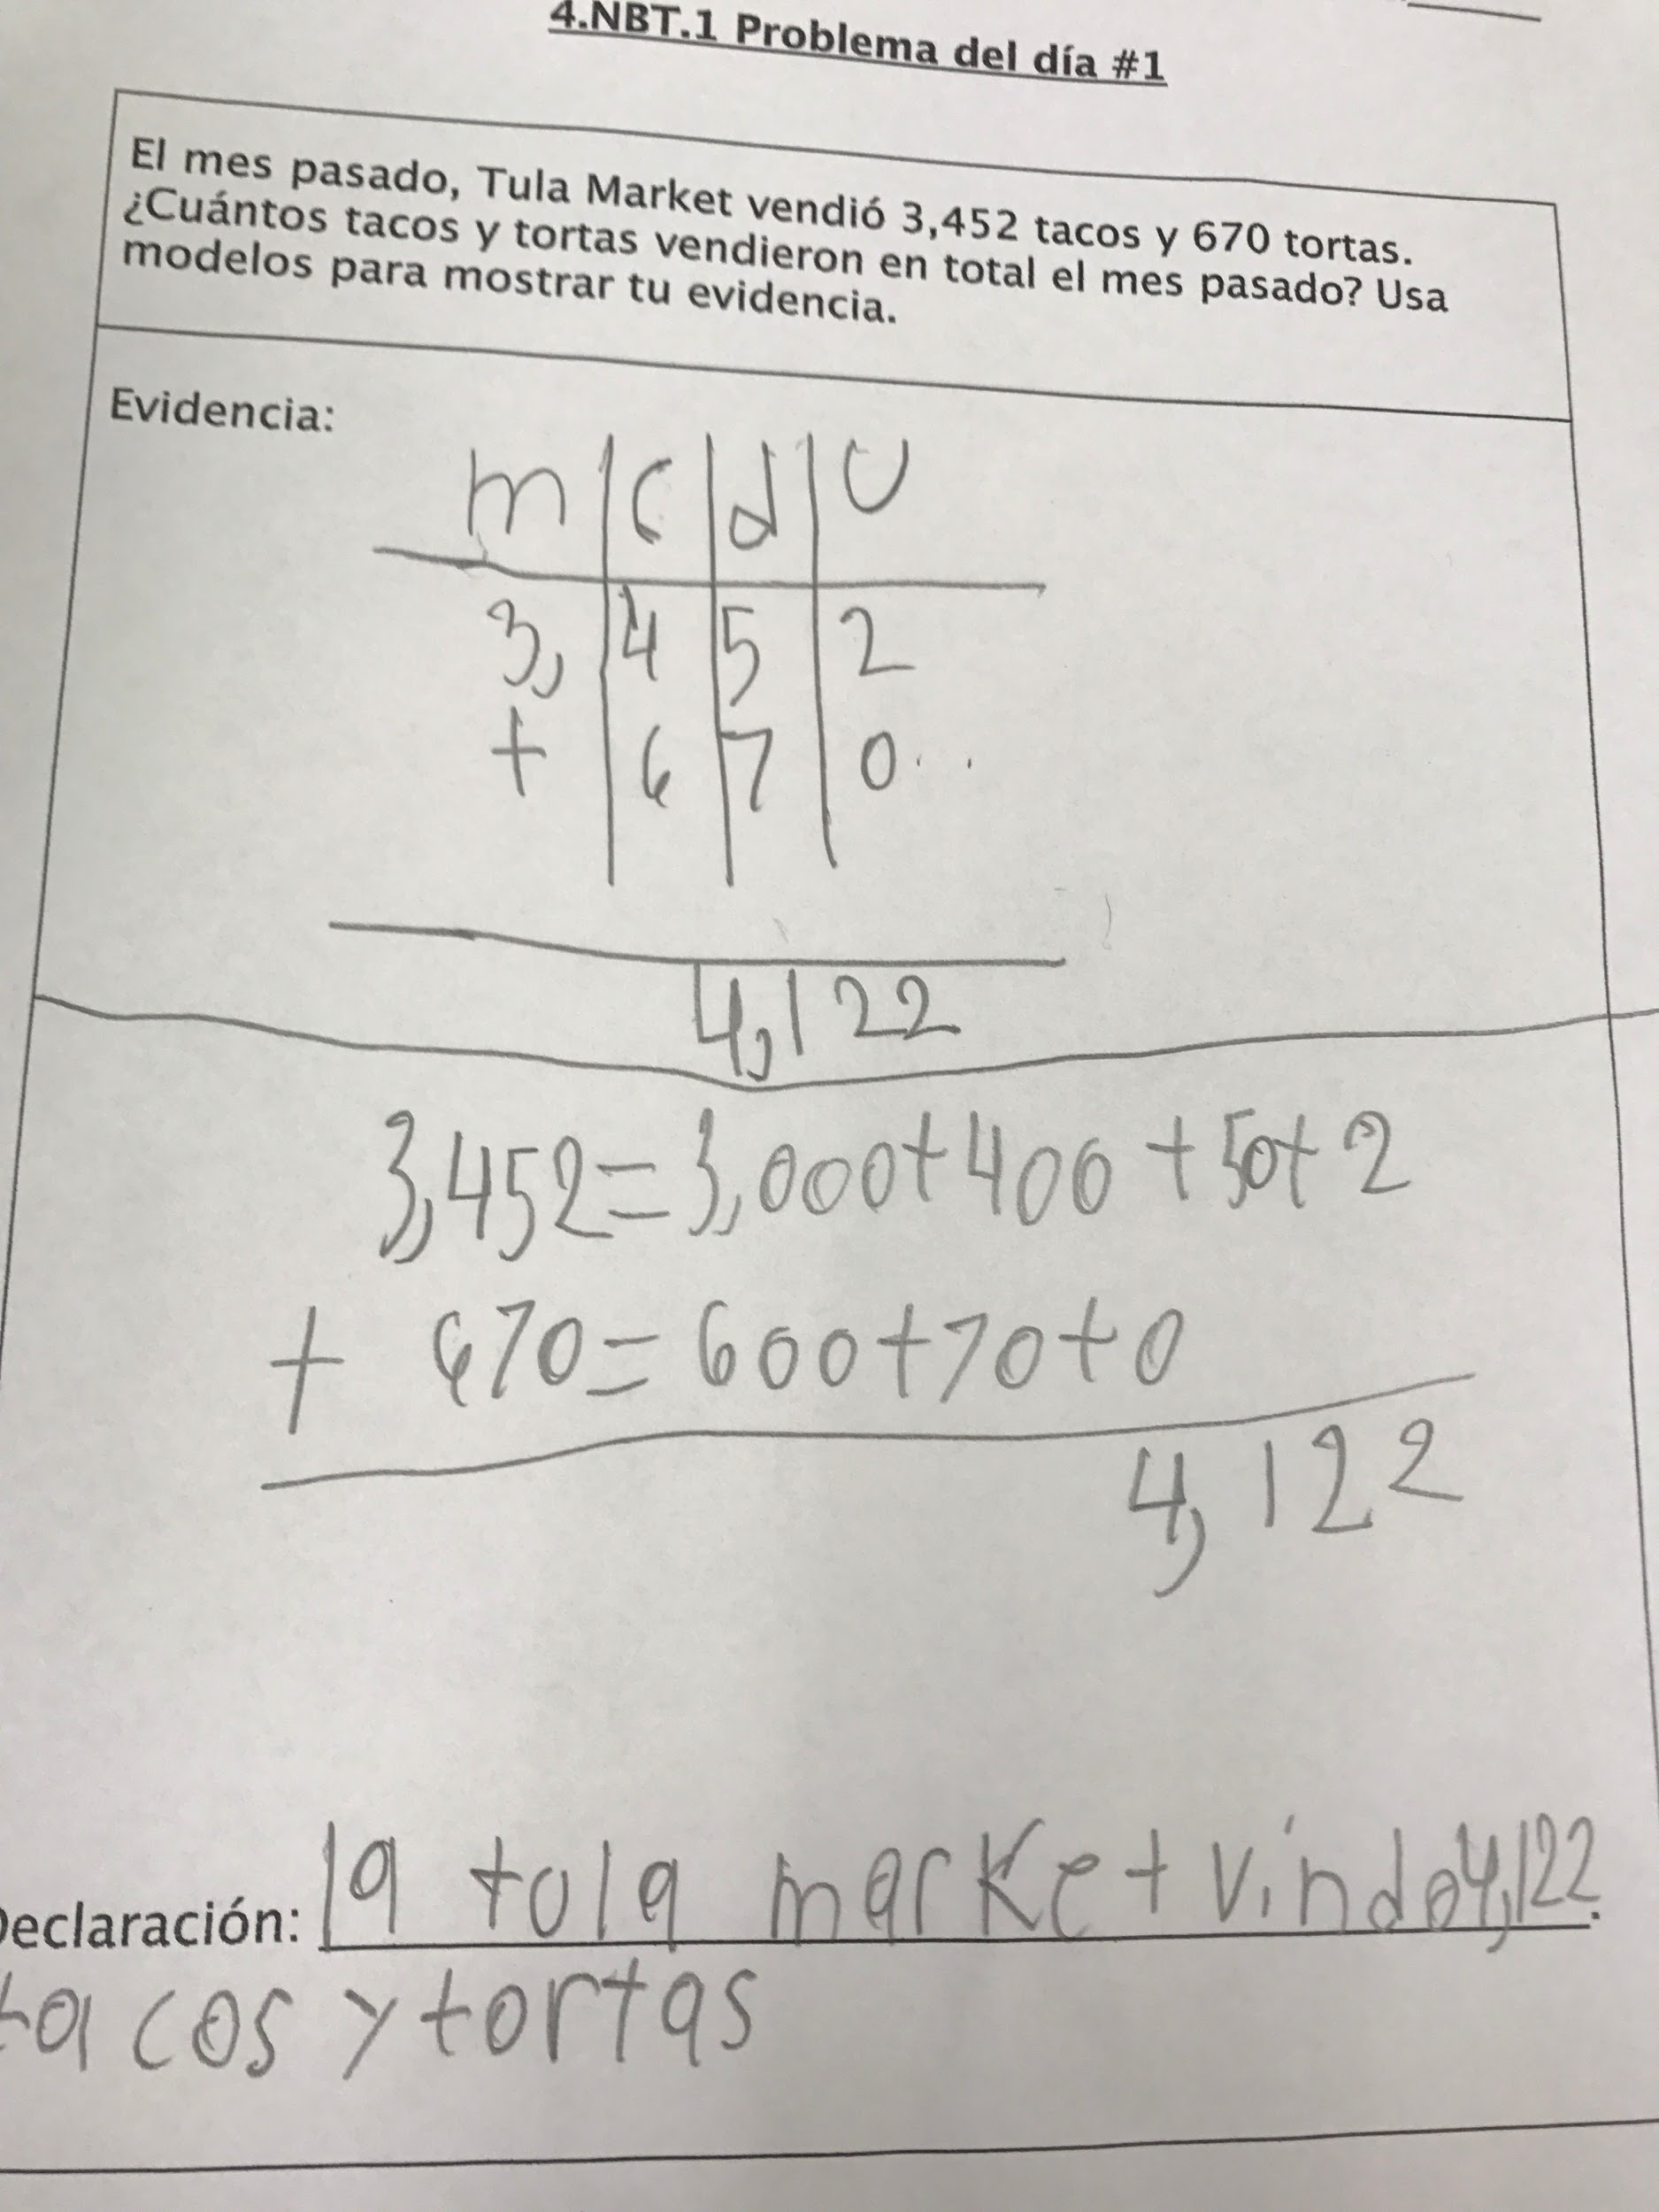 4.NBT.1 Problema del día #1
El mes pasado, Tula Market vendió 3,452 tacos y 670 tortas.
¿Cuántos tacos y tortas vendieron en total el mes pasado? Usa
modelos para mostrar tu evidencia.
Evidencia:
m c d u
3,452
+ 670..
4,122
3,452=3,000+400+50+2
+ 670=600+70+0
4,122
Declaración: la tula market vindo 4,122.
tacos y tortas